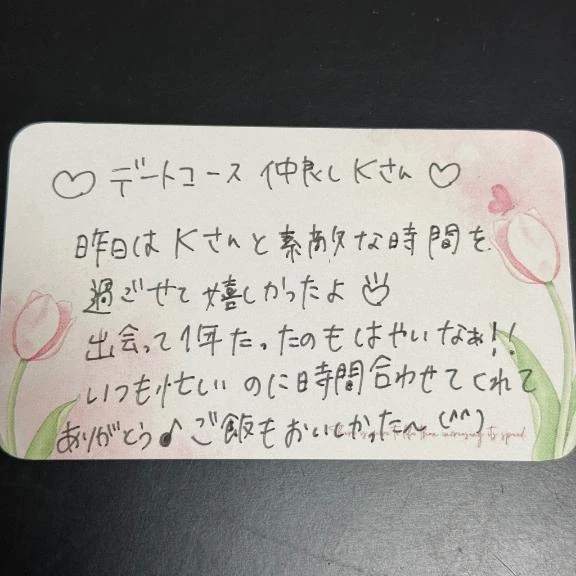 ♡ デートコース 仲良し Kさん ♡
昨日は Kさんと素敵な時間を
過ごせて嬉しかったよ♡
出会って1年たったのもはやいなぁ!!
いつも忙しいのに時間合わせてくれて
ありがとう♪ご飯もおいしかった〜(^^)
increasing its speed